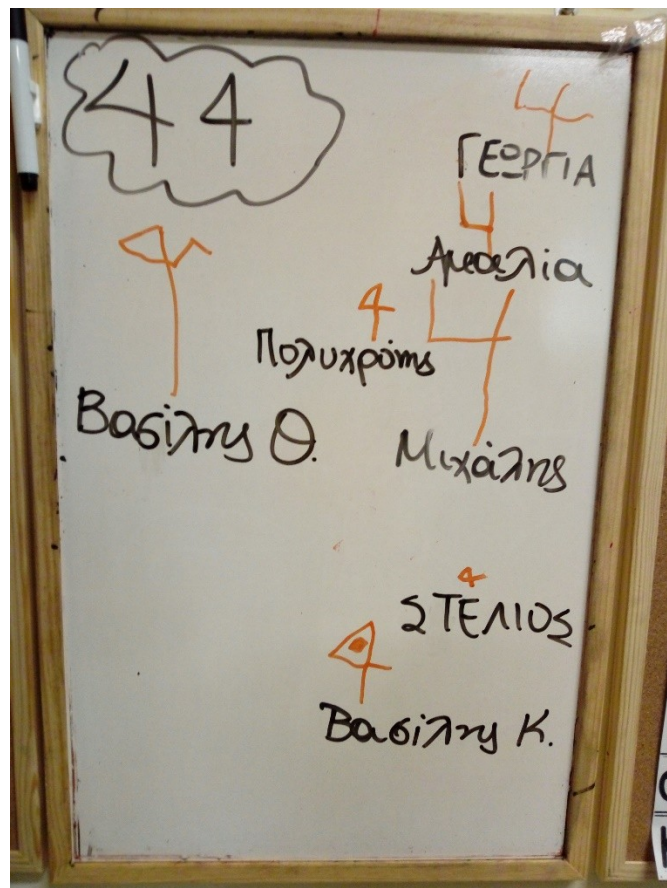 44
4
ΓΕΩΡΓΙΑ
4
Αμαλία
4
Πολυχρόνης
4
4
Βασίλης Θ.
Μιχάλης
4
ΣΤΕΛΙΟΣ
4
Βασίλης Κ.